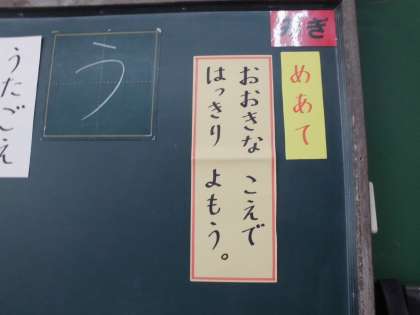 めあて
おおきな こえで
はっきり よもう。
う
うたごえ